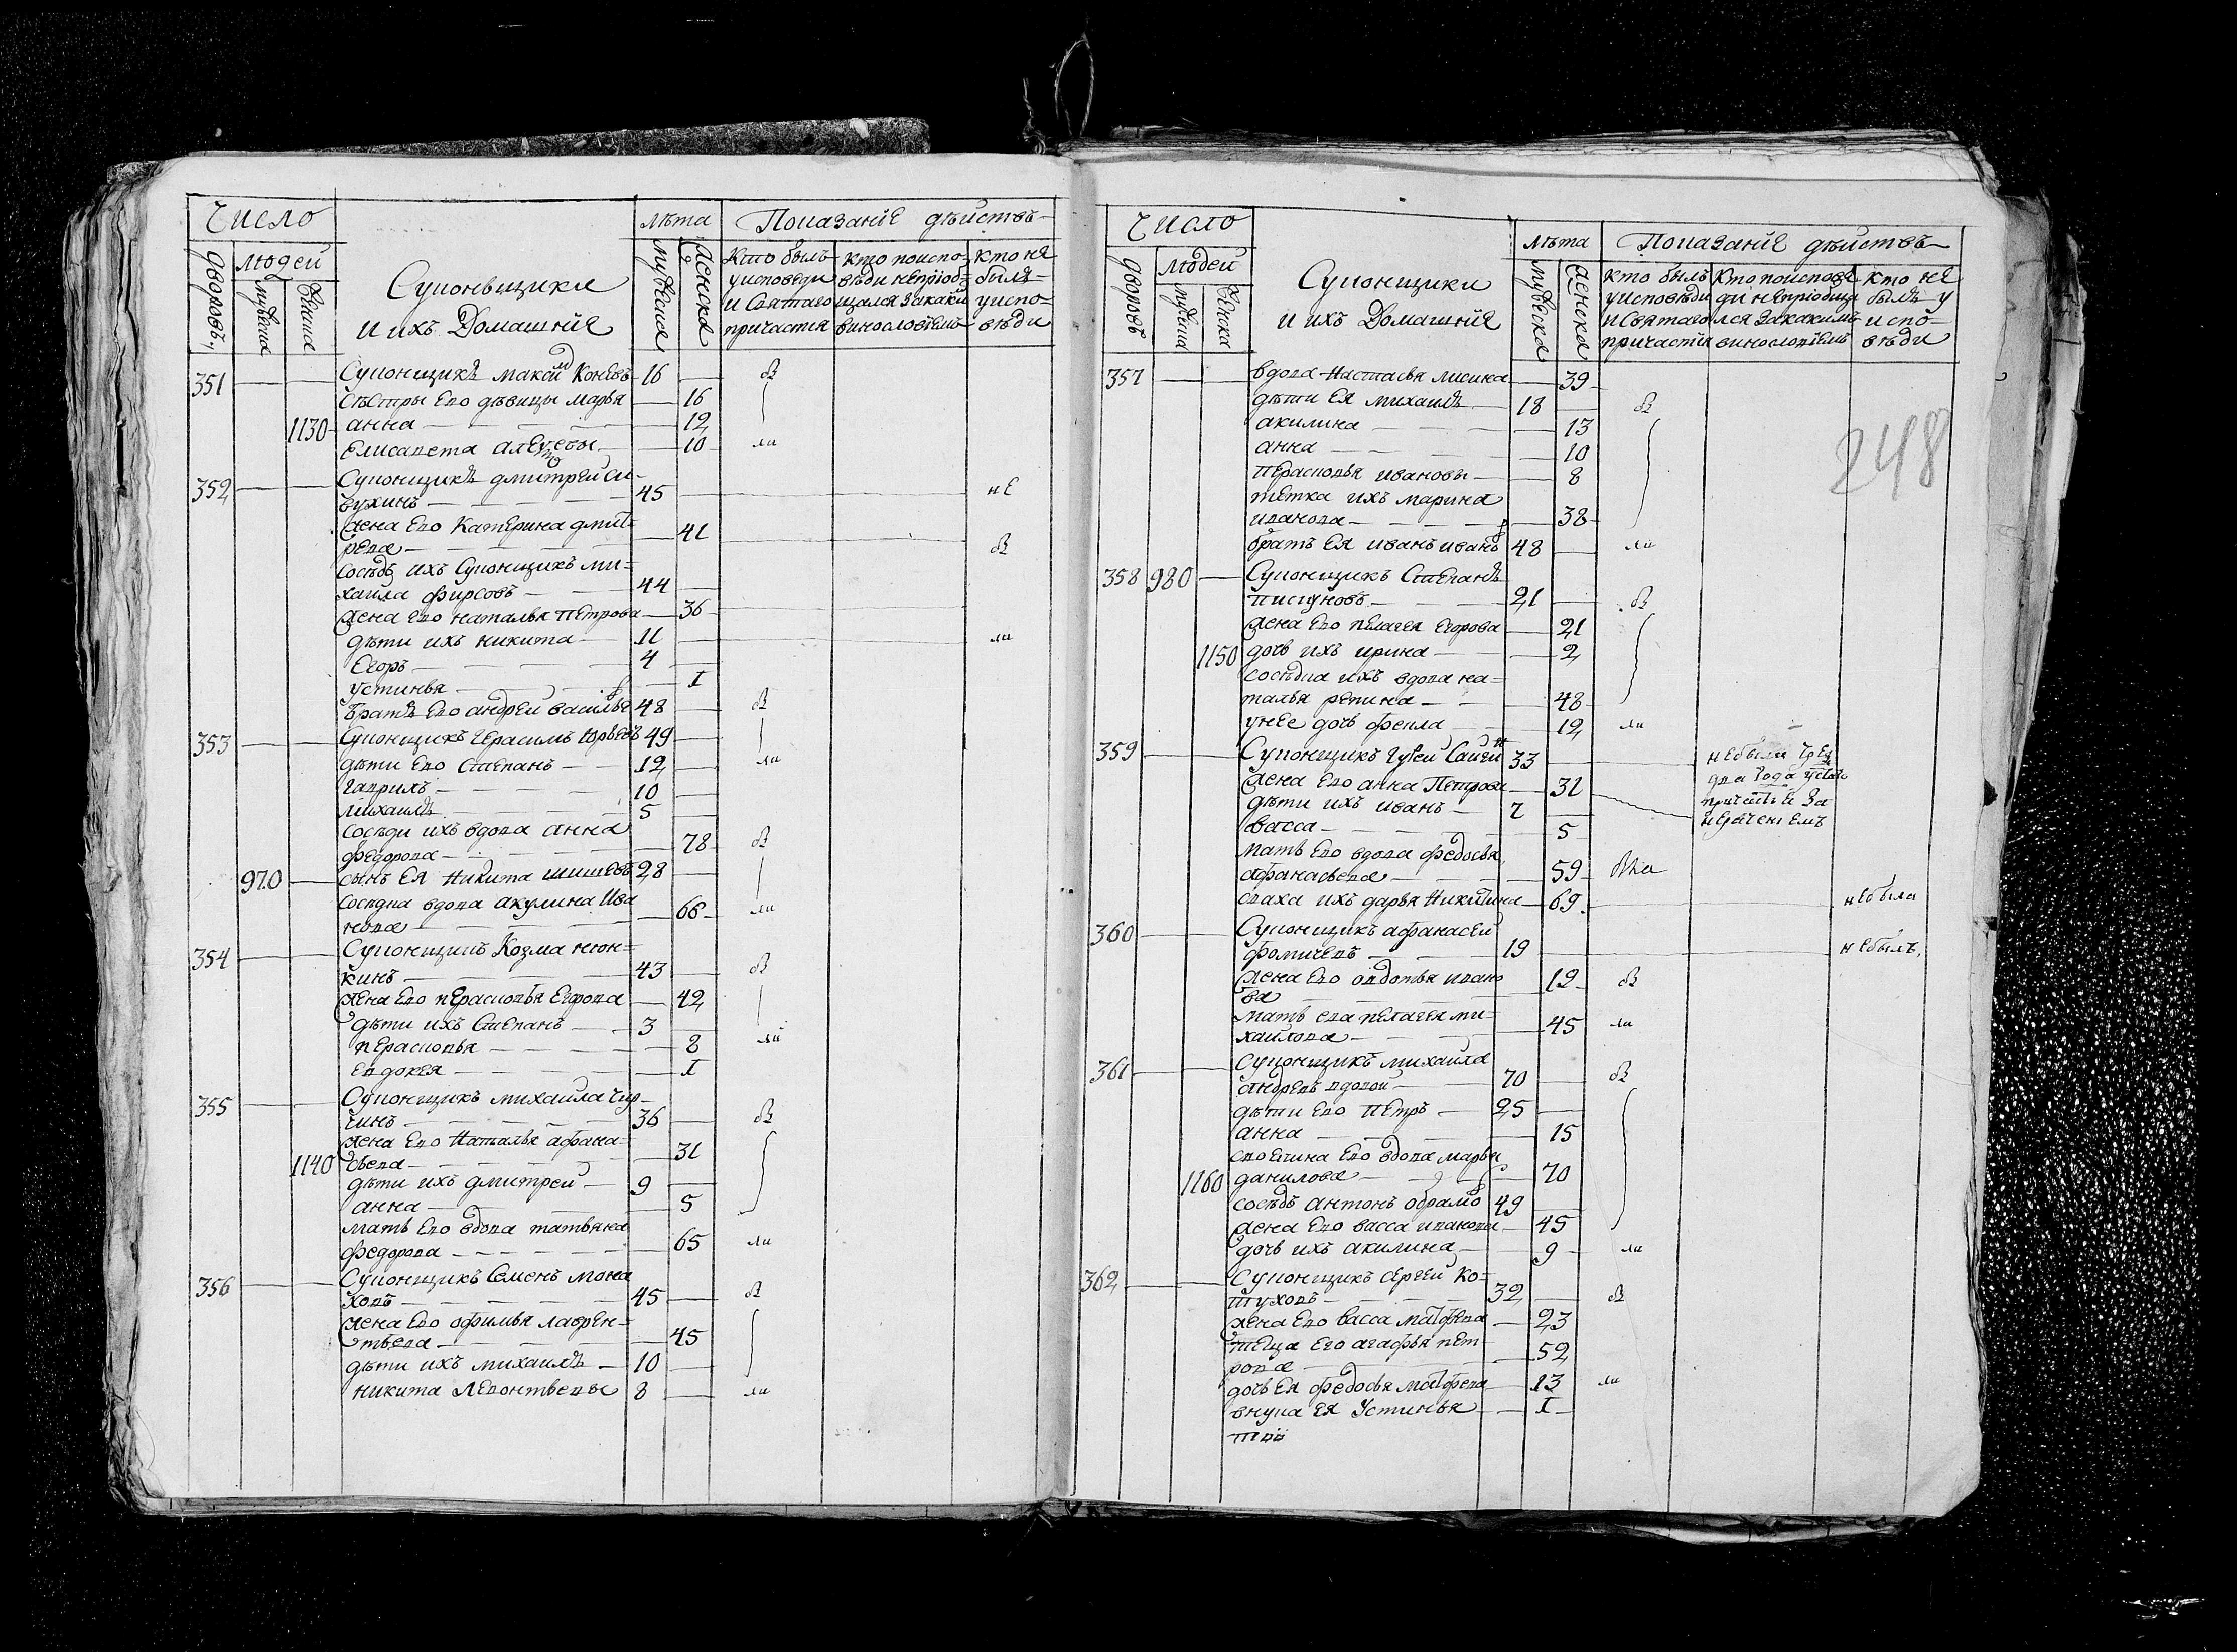 Число
Суконьщики
и ихъ Домашніе
лѣта
Показаніе дѣйствъ
дворовъ
людей
мужеска
женска
мужеска
женска
Кто былъ
у исповеди
и Святаго
причастія
кто поиспо-
вѣди непріоб-
щался за каки
винословіемъ
кто не
былъ
у испо-
вѣди
351 Суконщикъ Максим Коневъ 16 бы
сѣстры Ево дѣвицы марья 16
1130 анна 12
Елисавета 10 ли
352 Суконщикъ дмитрей Си-
вухинъ 45 не
жена Ево Катерина дмит-
рева 41 бы
сосѣдъ ихъ Суконщикъ ми-
хаила фирсовъ 44
жена Ево наталья Петрова 36
дѣти ихъ никита 11 ли
Егоръ 4
устинья 1
братъ Ево андреи василье 48 бы
353 Суконщикъ Герасимъ Юрьевъ 49
дѣти Ево Степанъ 12 ли
гаврилъ 10
михаилъ 5
сосѣди ихъ вдова анна
федорова 78 бы
970 сынъ Ея никита шишевъ 28
сосѣдка вдова акулина Ива
нова 66 ли
354 Суконщикъ Козма нюн-
кинъ 43 бы
жена Ево перасковья Егорова 42
дѣти ихъ Степанъ 3
перасковья 2 ли
Евдокея 1
355 Суконщикъ михаила чур-
чинъ 36 бы
жена Ево наталья афана-
1140 сьева 31
дѣти ихъ дмитреи 9
анна 5
мать Ево вдова татьяна
федорова 65 ли
356 Суконщикъ Семенъ мона
ховъ 45 бы
жена Ево офимья лаврен-
тьева 45
дѣти ихъ михаилъ 10
никита Левонтьевы 8 ли
Число
Суконщики
и ихъ Домашніе
лѣта
Показаніе дѣйствъ
дворовъ
людей
мужеска
женска
мужеска
женска
кто былъ
у исповѣди
и Святаго
причастія
кто поиспове
ди непріобща
лся за какимъ
винословіемъ
кто не
былъ у
испо-
вѣди
248
357 вдова настасья лисина 39
дѣти Ея михаилъ 18 бы
акилина 13
анна 10
Перасковья ивановы 8
тетка ихъ марина
иванова 38
братъ Ея иванъ иванъ 48 ли
358 980 Суконщикъ Степанъ
писуновъ 21 бы
жена Ево пелагея Егорова 21
1150 дочь ихъ ирина 2
сосѣдка ихъ вдова на-
талья репина 48
у нее дочь фекла 12 ли
359 Суконщикъ 33 не были чрез
жена Ево анна Петрова 31 два года у Свят
дѣти ихъ иванъ 7
васса 5
мать Ево вдова федосья
афанасьева 59 была
сваха ихъ дарья никитина 69 не была
360 Суконщикъ афанасеи
фомичевъ 19 не былъ
жена Ево овдотья ивано
ва 12 бы
мать Ева пелагея ми-
хаилова 45 ли
361 Суконщикъ михаила
андревъ вдовой 70 бы
дѣти Ево Петръ 25
анна 15
своячина Ево вдова марья
1160 данилова 70
сосѣдъ антонъ обрамо 49
жена Ево васса иванова 45
дочь ихъ акилина 9 ли
362 Суконщикъ сергеи Ко-
туховъ 32 бы
жена Ево васса матфева 23
теща Его агафья пет
рова 52
дочь Ея федосья матфева 13 ли
внука Ея Устинья 1